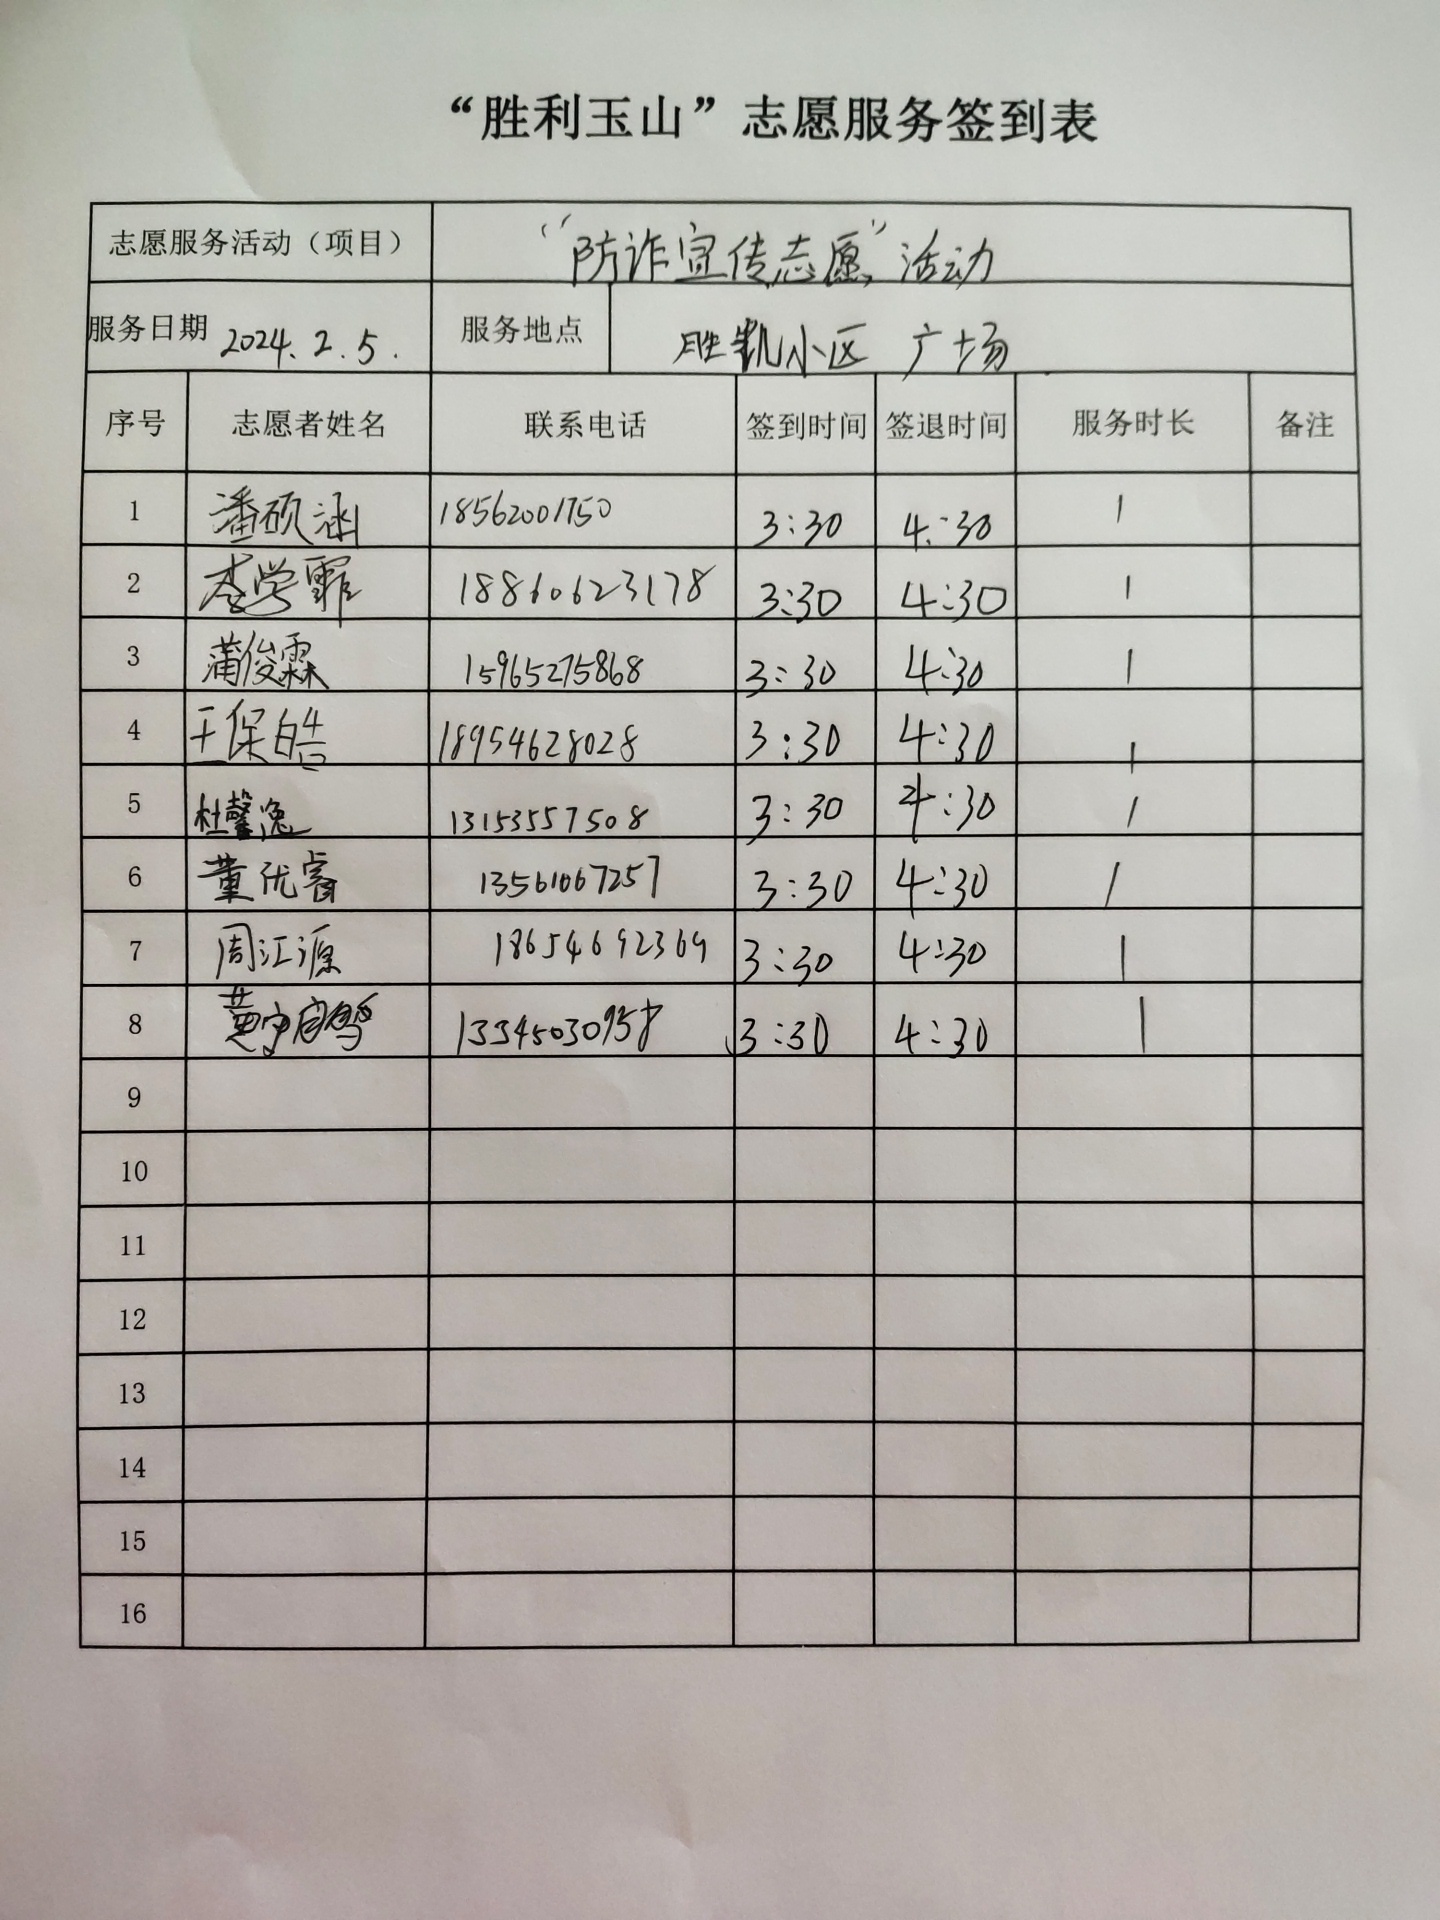 “胜利玉山”志愿服务签到表
志愿服务活动（项目） “防诈宣传志愿”活动
服务日期 2024.2.5. 服务地点 胜凯小区 广场
序号 志愿者姓名 联系电话 签到时间 签退时间 服务时长 备注
1 潘硕涵 18562001750 3:30 4:30 1
2 李学霏 18860623178 3:30 4:30 1
3 蒲俊霖 15965275868 3:30 4:30 1
4 王保皓 18954628028 3:30 4:30 1
5 杜馨逸 13153557508 3:30 4:30 1
6 董优睿 13561067257 3:30 4:30 1
7 周汇源 18654692369 3:30 4:30 1
8 3:30 4:30 1
9
10
11
12
13
14
15
16